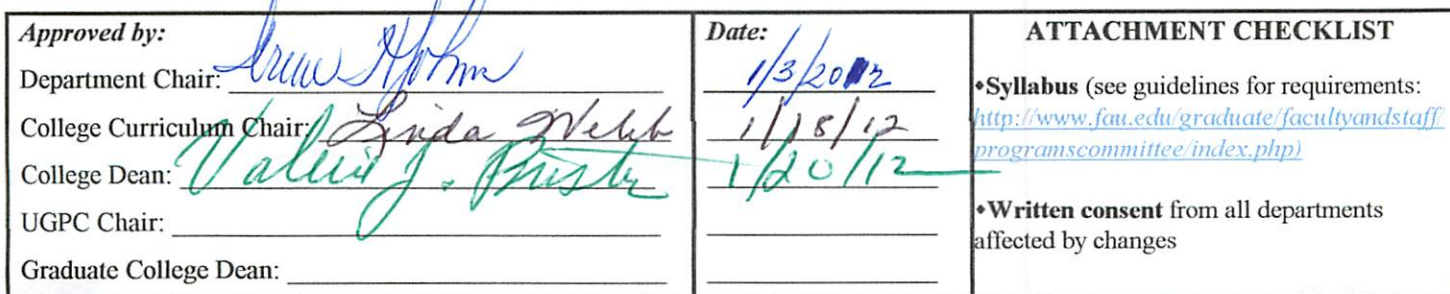 Approved by:
Department Chair:
College Curriculum Chair: Linda Webb
College Dean: Valerie J. Bristor
UGPC Chair:
Graduate College Dean:
Date:
1/3/2012
1/18/12
1/20/12
ATTACHMENT CHECKLIST
•Syllabus (see guidelines for requirements:
http://www.fau.edu/graduate/facultyandstaff/
programscommittee/index.php)
•Written consent from all departments
affected by changes